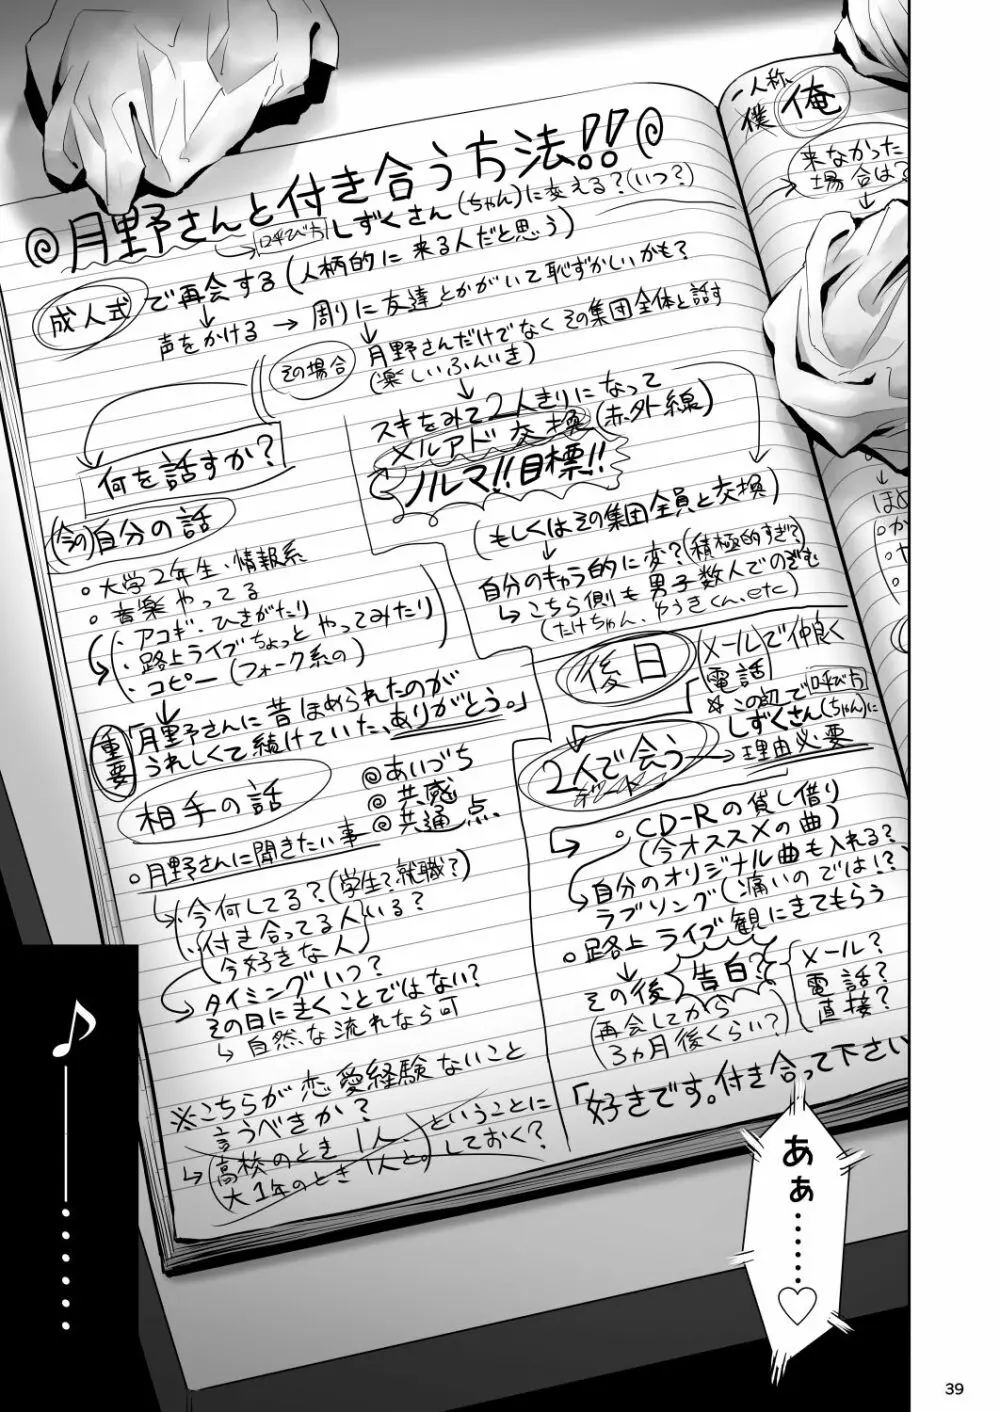 ◎月野さんと付き合う方法!!◎
→呼び方 しずくさん(ちゃん)に変える?(いつ?)
成人式で再会する(人柄的に来る人だと思う)
声をかける→周りに友達とかがいて恥ずかしいかも?
その場合
月野さんだけでなくその集団全体と話す
(楽しいふんいき)
スキをみて2人きりになって
メルアド交換(赤外線)
ノルマ!!目標!!
(もしくはその集団全員と交換)
自分のキャラ的に変?(積極的すぎ?)
→こちら側も男子数人でのぞむ
(たけちゃん、ゆうきくん、etc)
何を話すか?
(今の)自分の話
○大学2年生・情報系
○音楽やってる
・アコギ・ひきがたり
・路上ライブちょっとやってみたり
・コピー(フォーク系の)
重要
「月野さんに昔ほめられたのが
うれしくて続けていた、ありがとう。」
相手の話
◎あいづち
◎共感
◎共通点
○月野さんに聞きたい事
・今何してる?(学生?就職?)
・付き合ってる人いる?
(今好きな人)
タイミングいつ?
その日にきくことではない?
→自然な流れなら可
※こちらが恋愛経験ないこと
言うべきか?
→(高校のとき1人、
大1年のとき1人と。)
ということに
しておく?
後日
メールで仲良く
電話
☆この辺で呼び方
しずくさん(ちゃん)に
2人で会う
デート
理由必要
○CD-Rの貸し借り
(今オススメの曲)
→自分のオリジナル曲も入れる?
ラブソング(痛いのでは!?
○路上ライブ観にきてもらう
その後告白?
(再会してから
3ヵ月後くらい?)
メール?
電話?
直接?
「好きです。付き合って下さい
一人称
僕 俺
来なかった
場合は?
ほめ
○か
♪――……
あぁ……♡
39